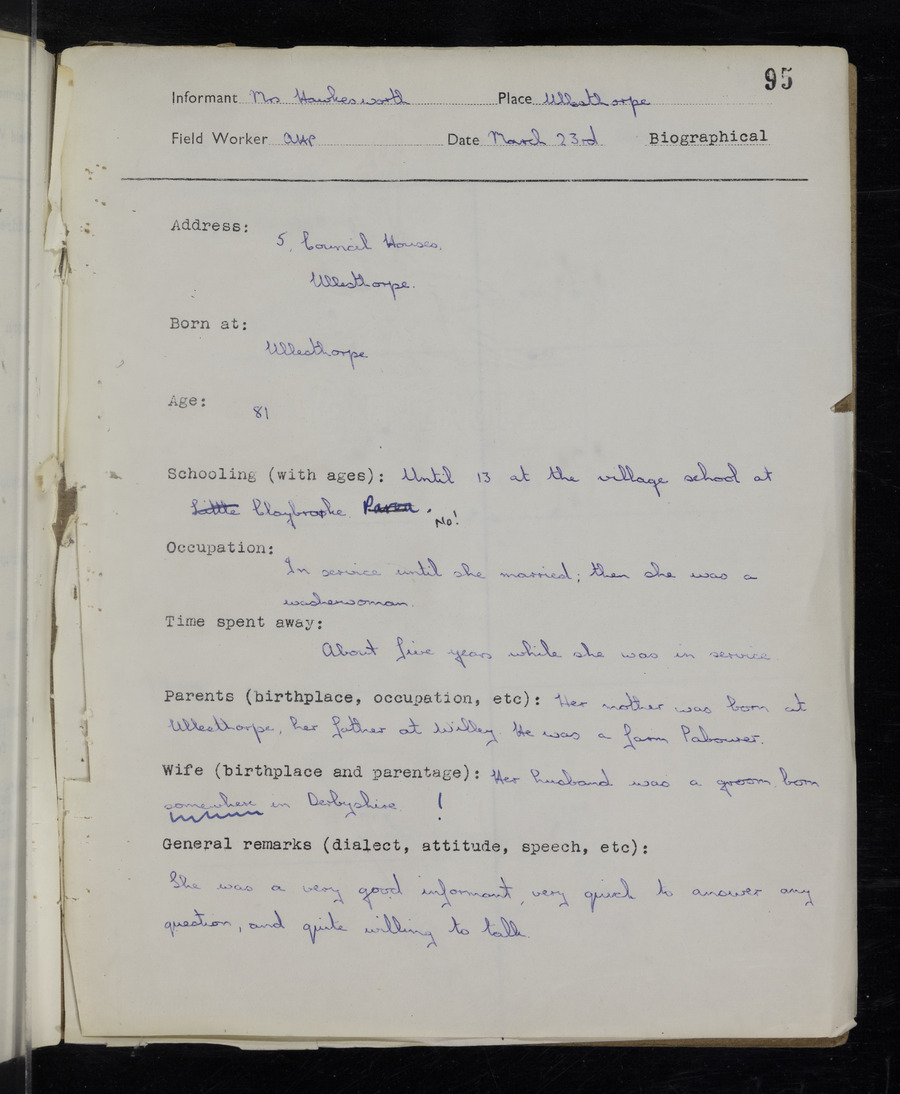 95
Informant Mrs Hawkesworth Place Ullesthorpe
Field Worker Date March 23rd. Biographical
Address:
5, Council Houses,
Ullesthorpe.
Born at:
Ullesthorpe
Age:
81
Schooling (with ages): Until 13 at the village school at
Little Claybrooke Parva. No!
Occupation:
In service until she married; then she was a
washerwoman.
Time spent away:
About five years while she was in service
Parents (birthplace, occupation, etc): Her mother was born at
Ullesthorpe, her father at Willey. He was a farm labourer.
Wife (birthplace and parentage): Her husband was a groom born
somewhere in Derbyshire. !
General remarks (dialect, attitude, speech, etc):
She was a very good informant, very quick to answer any
question, and quite willing to talk.